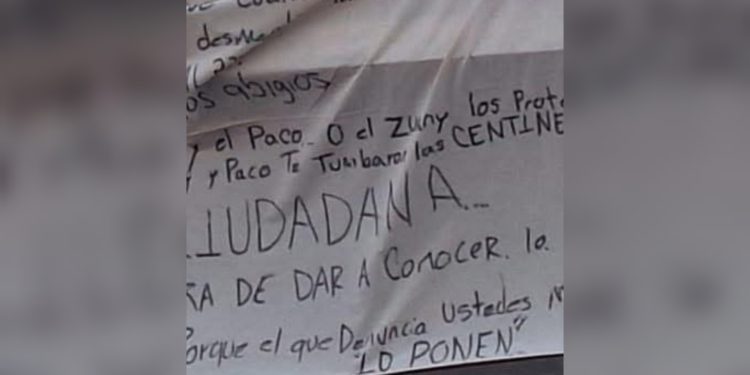 desm
os abigios
y el Paco.. O el Zuny los Prote
y Paco Te Tumbaron las CENTINE
IUDADANA...
RA DE DAR A CONOCER. lo
Porque el que Denuncia Ustedes
"LO PONEN"